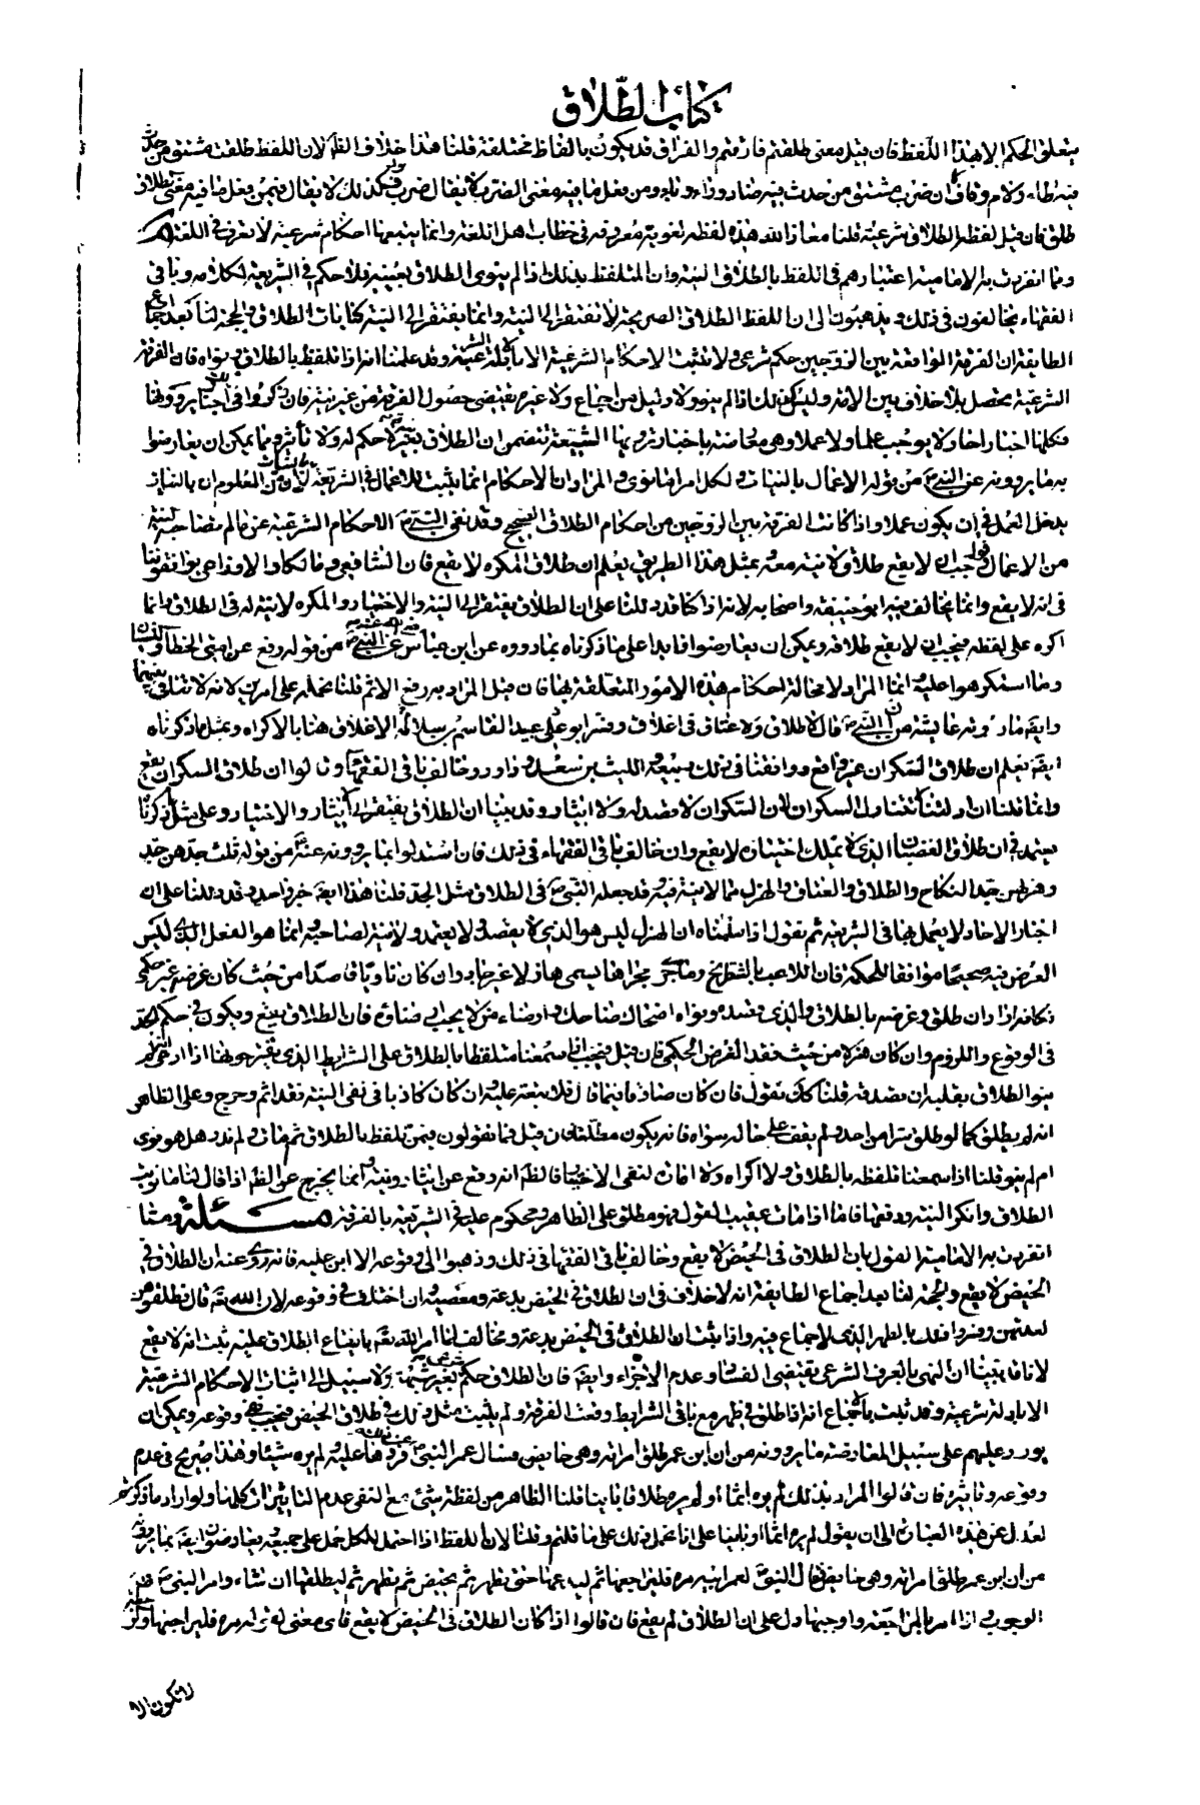 كتاب الطلاق
يتعلق الحكم الا بهذا اللفظ فان قيل معنى طلقتم فارقتم والفراق قد يكون بالفاظ مختلفة قلنا هذا خلاف الظ لان اللفظ طلقت مشتق من حدث
فيه طاء ولام وقاف كما ان ضرب مشتق من حدث فيه ضاد وراء وباء ومن فعل ما فيه معنى الضرب لا يقال ضرب وكذلك لا يقال فيمن فعل ما فيه معنى الطلاق
طلق فان قيل لفظ الطلاق شرعية قلنا معاذ الله هذه لفظة لغوية معروفة في خطاب اهل اللغة وانما يتبعها احكام شرعية لا تعرف في اللغة
ومما انفردت به الامامية اعتبارهم في اللفظ بالطلاق النية وان المتلفظ بذلك اذا لم ينوى الطلاق بعينه فلا حكم في الشريعة لكلامه وباقي
الفقهاء يخالفون في ذلك ويذهبون الى ان اللفظ الطلاق الصريح لا تفتقر الى النية وانما يفتقر الى النية كنايات الطلاق والحجة لنا بعد اجماع
الطايفة ان الفرقة الواقعة بين الزوجين حكم شرعي ولا تثبت الاحكام الشرعية الا بادلة شرعية وقد علمنا انه اذا تلفظ بالطلاق ونواه فان الفرقة
الشرعية تحصل بلا خلاف بين الامة وليس كذلك اذا لم ينو ولا دليل من اجماع ولا غيره يقتضى حصول الفرقة من غير نية فان ذكروا في اخبار يروونها
فكلها اخبار احاد لا يوجب علما ولا عملا وهي معارضة باخبار ترويها الشيعة تتضمن ان الطلاق بغير نية لا حكم له ولا تأثير ومما يمكن ان يعارضوا
به ما يروونه عن النبي ص من قوله الاعمال بالنيات ولكل امرء ما نوى والمراد ان الاحكام انما يثبت للاعمال في الشريعة بالنيات لان من المعلوم ان بالنيات
يدخل العمل في ان يكون عملا واذا كانت الفرقة بين الزوجين من احكام الطلاق الصحيح وقد نفى النبي ص الاحكام الشرعية عن ما لم تصاحبه النية
من الاعمال فوجب ان لا يقع طلاق لا نية معه وبمثل هذا الطريق يعلم ان طلاق المكره لا يقع فان الشافعي ومالكا والاوزاعي يوافقوننا
في انه لا يقع وانما يخالف فيه ابو حنيفة واصحابه لانه اذا كنا قد دللنا على ان الطلاق يفتقر الى النية والاختيار والمكره لا نية له في الطلاق وانما
اكره على لفظه فيجب ان لا يقع طلاقه ويمكن ان يعارضوا فايدا على ما ذكرناه بما رووه عن ابن عباس عن النبي ص من قوله رفع عن امتي الخطأ والنسيان
وما استكرهوا عليه انما المراد لا محالة احكام هذه الامور المتعلقة بها فان قيل المراد به رفع الاثم قلنا نحمله على امرين لانه لا تنافي بينهما
وايضا ما روته عايشة من ان النبي ص قال لا طلاق ولا عتاق في اغلاق وفسر ابو عبيد القاسم بن سلام الاغلاق هنا بالاكراه وبمثل ما ذكرناه
ايضا نعلم ان طلاق السكران غير واقع ووافقنا في ذلك ربيعة والليث بن سعد وداود وخالف باقي الفقهاء وقالوا ان طلاق السكران يقع
وانما قلنا ان ادلتنا تتناول السكران لان السكران لا قصد له ولا ايثار وقد بينا ان الطلاق يفتقر الى ايثار والاختيار وعلى مثل ما ذكرنا
يعتمد في ان طلاق الغضبان الذي لا يملك اختياره لا يقع وان خالف باقي الفقهاء في ذلك فان استدلوا بما يروونه عنه ص من قوله ثلث جدهن جد
وهزلهن جد النكاح والطلاق والعتاق والهزل مما لا نية فيه وقد جعله النبي ص في الطلاق مثل الجد قلنا هذا ايضا خبر واحد وقد دللنا على ان
اخبار الاحاد لا يعمل بها في الشريعة ثم نقول اذا سلمناه ان الهزل ليس هو الذي لا يقصد ولا يعتمد ولا نية لصاحبه وانما هو الفعل الذي ليس
الغرض فيه صحيحا موافقا للحكمة فان اللاعب بالشطرنج وما جرى مجراها يسمى هازلا غير جاد وان كان ناويا قاصدا من حيث كان غرضه غير حكمي
فكانه اراد ان طلق وغرضه بالطلاق والذي قصده ونواه اضحاك ضاحك وارضاء من لا يجب ارضاؤه فان الطلاق يقع ويكون في حكم الجد
في الوقوع واللزوم وان كان هزلا من حيث فقد الغرض الحكمي فان قيل فيجب اذا سمعنا متلفظا بالطلاق على الشرايط الذي يعتبرونها اذا ادعى انه لم
ينو الطلاق بقلبه ان نصدقه قلنا كذلك نقول فان كان صادقا فيما قال فلا تبعة عليه وان كان كاذبا في نفى النية فقد اثم وحرج وعلى الظاهر
انه لم يطلق كما لو طلق سرا من احد ولم يقف على حاله سواه فانه يكون مطلقا فان قيل فما تقولون فيمن تلفظ بالطلاق ثم مات ولم ندر هل هو نوى
ام لم ينو قلنا اذا سمعنا تلفظه بالطلاق ولا اكراه ولا امارة لنفى الاختيار فالظ انه وقع عن ايثار ونية وانما يخرج عن الظ اذا قال لنا ما نويت
الطلاق وانكر النية ودفعها فاما اذا مات عقيب القول فهو مطلق على الظاهر ومحكوم عليه في الشريعة بالفرقة مسئلة ومما
انفردت به الامامية القول بان الطلاق في الحيض لا يقع وخالف باقي الفقهاء في ذلك وذهبوا الى وقوعه الا ابن علية فانه روى عنه ان الطلاق في
الحيض لا يقع والحجة لنا بعد اجماع الطايفة انه لا خلاف في ان الطلاق في الحيض بدعة ومعصية وان اختلف في وقوعه لان الله تع قال فطلقوهن
لعدتهن وفسروا ذلك بالطهر الذي لا جماع فيه واذا ثبت ان الطلاق في الحيض بدعة ومخالف لما امر الله تع بايقاع الطلاق عليه ثبت انه لا يقع
لانا قد بينا ان النهى بالعرف الشرعي يقتضى الفساد وعدم الاجزاء وايضا فان الطلاق حكم شرعي بغير شبهة ولا سبيل الى اثبات الاحكام الشرعية
الا بادلة شرعية وقد ثبت بالاجماع انه اذا طلق في طهر مع باقي الشرايط وقعت الفرقة ولم يثبت مثل ذلك في طلاق الحيض فيجب نفى وقوعه ويمكن ان
يورد عليهم على سبيل المعارضة ما يروونه من ان ابن عمر طلق امراته وهي حايض فسال عمر النبي ص عن ذلك فردها عليه ولم يره شيئا وهذا صريح في عدم
وقوعه وتاثيره فان قالوا المراد بذلك لم يره اثما او لم يره طلاقا باينا قلنا الظاهر من لفظة شيئ مع النفى عدم التاثيرات كلها ولو اراد ما ذكروه
لعدل عن هذه العبارة الى ان يقول لم يره اثما او باينا على انا نحمل ذلك على ما قلتم وقلنا لان اللفظ اذا احتمل الكل حمل على جميعه ويعارضون ايضا بما يروونه
من ان ابن عمر طلق امراته وهي حايض فقال النبي ص لعمر ابنه مره فليراجعها ثم ليدعها حتى تطهر ثم تحيض ثم تطهر ثم ليطلقها ان شاء وامر النبي ص يقتضى
الوجوب اذا امر بالمراجعة واوجبها دل على ان الطلاق لم يقع فان قالوا اذا كان الطلاق في الحيض لا يقع فاي معنى لقوله مره فليراجعها والرجعة
لا تكون الا